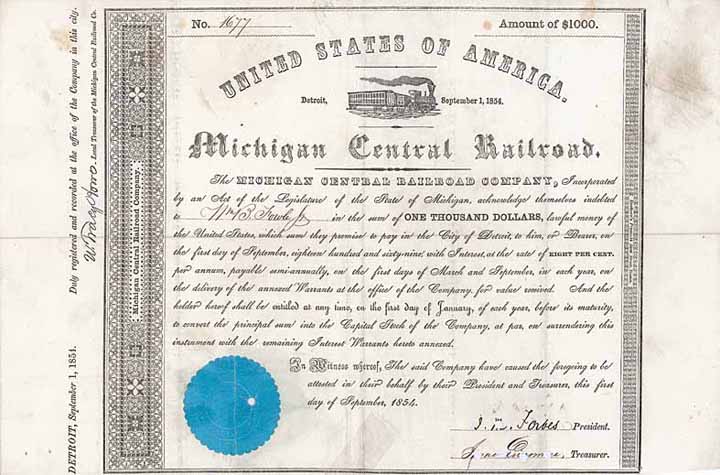 No. 1677
Amount of $1000.
UNITED STATES OF AMERICA.
Detroit, September 1, 1854.
Michigan Central Railroad.
The MICHIGAN CENTRAL RAILROAD COMPANY, Incorporated
by an Act of the Legislature of the State of Michigan, acknowledge themselves indebted
to Wm B. Fowle Jr in the sum of ONE THOUSAND DOLLARS, lawful money of
the United States, which sum they promise to pay in the City of Detroit, to him, or Bearer, on
the first day of September, eighteen hundred and sixty-nine, with Interest, at the rate of EIGHT PER CENT.
per annum, payable semi-annually, on the first days of March and September, in each year, on
the delivery of the annexed Warrants at the office of the Company, for value received. And the
holder hereof shall be entitled at any time, on the first day of January, of each year, before its maturity,
to convert the principal sum into the Capital Stock of the Company, at par, on surrendering this
instrument with the remaining Interest Warrants hereto annexed.
In Witness whereof, The said Company have caused the foregoing to be
attested in their behalf by their President and Treasurer, this first
day of September, 1854.
Forbes President.
Treasurer.
Michigan Central Railroad Company.
DETROIT, September 1, 1854. Duly registered and recorded at the office of the Company in this city.
Local Treasurer of the Michigan Central Railroad Co.